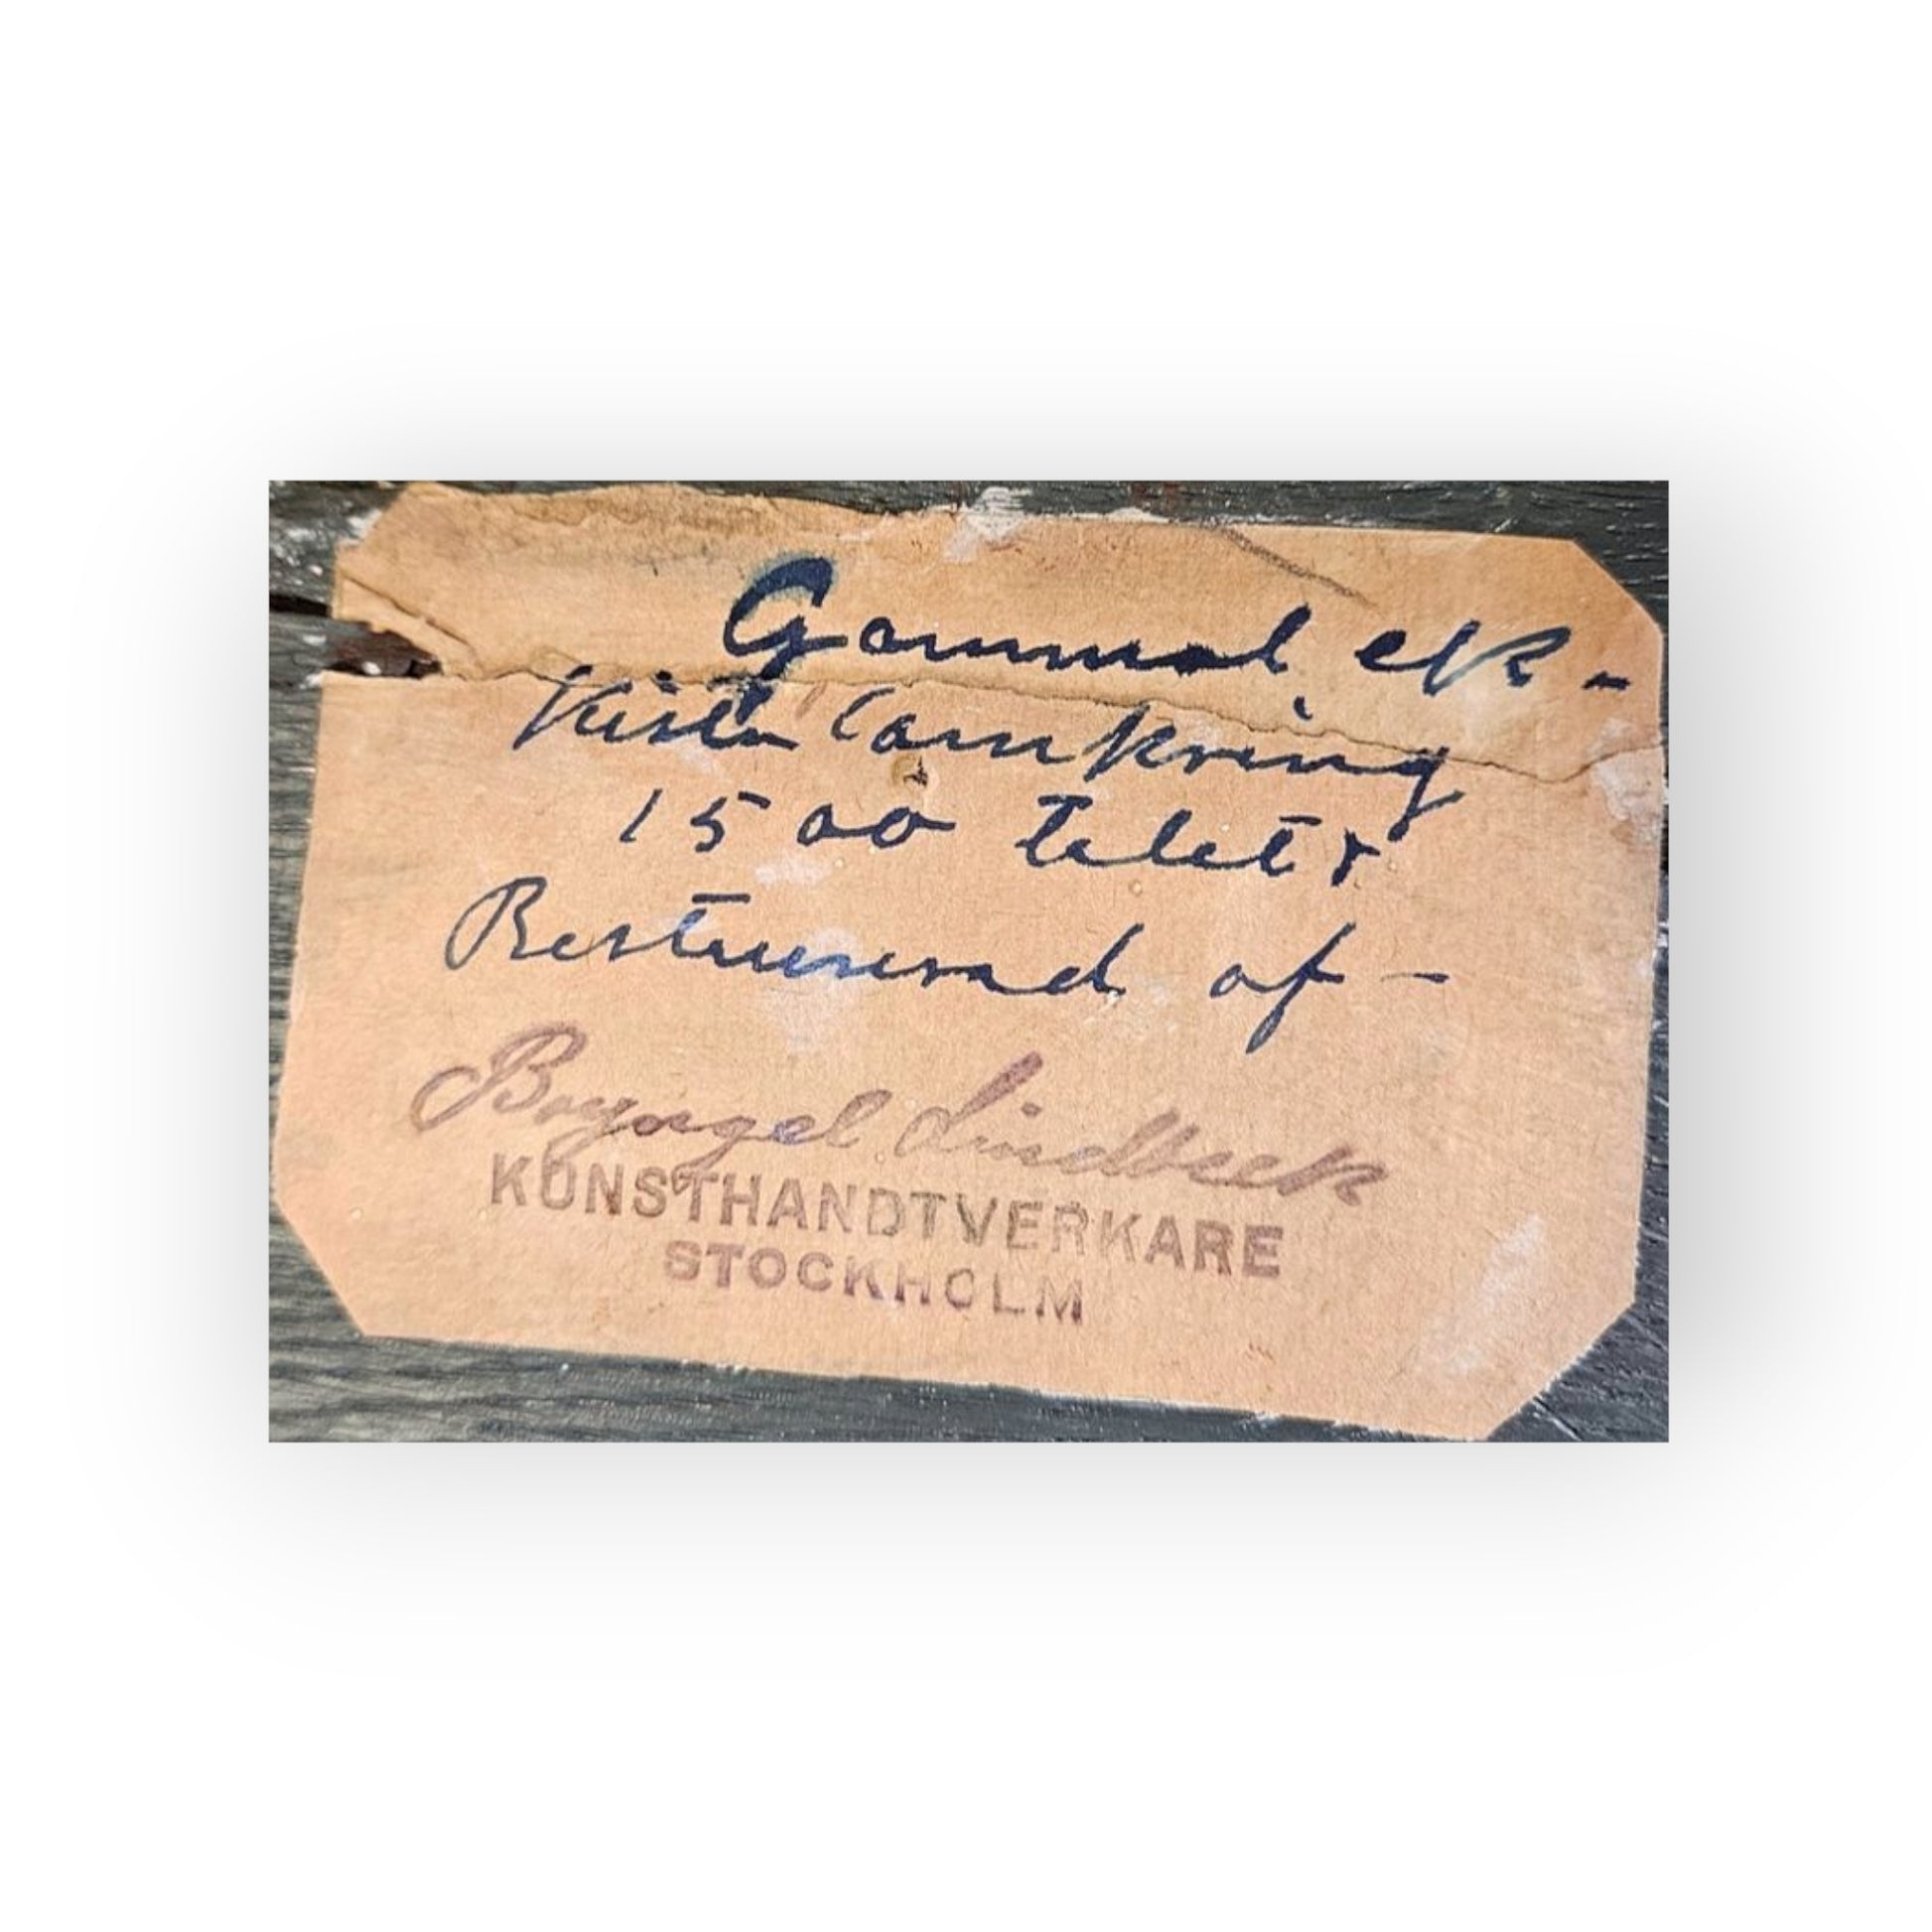 Gammal ek-
kista omkring
1500 talet.
Restaurerad af -
Lindbeck
KONSTHANDTVERKARE
STOCKHOLM